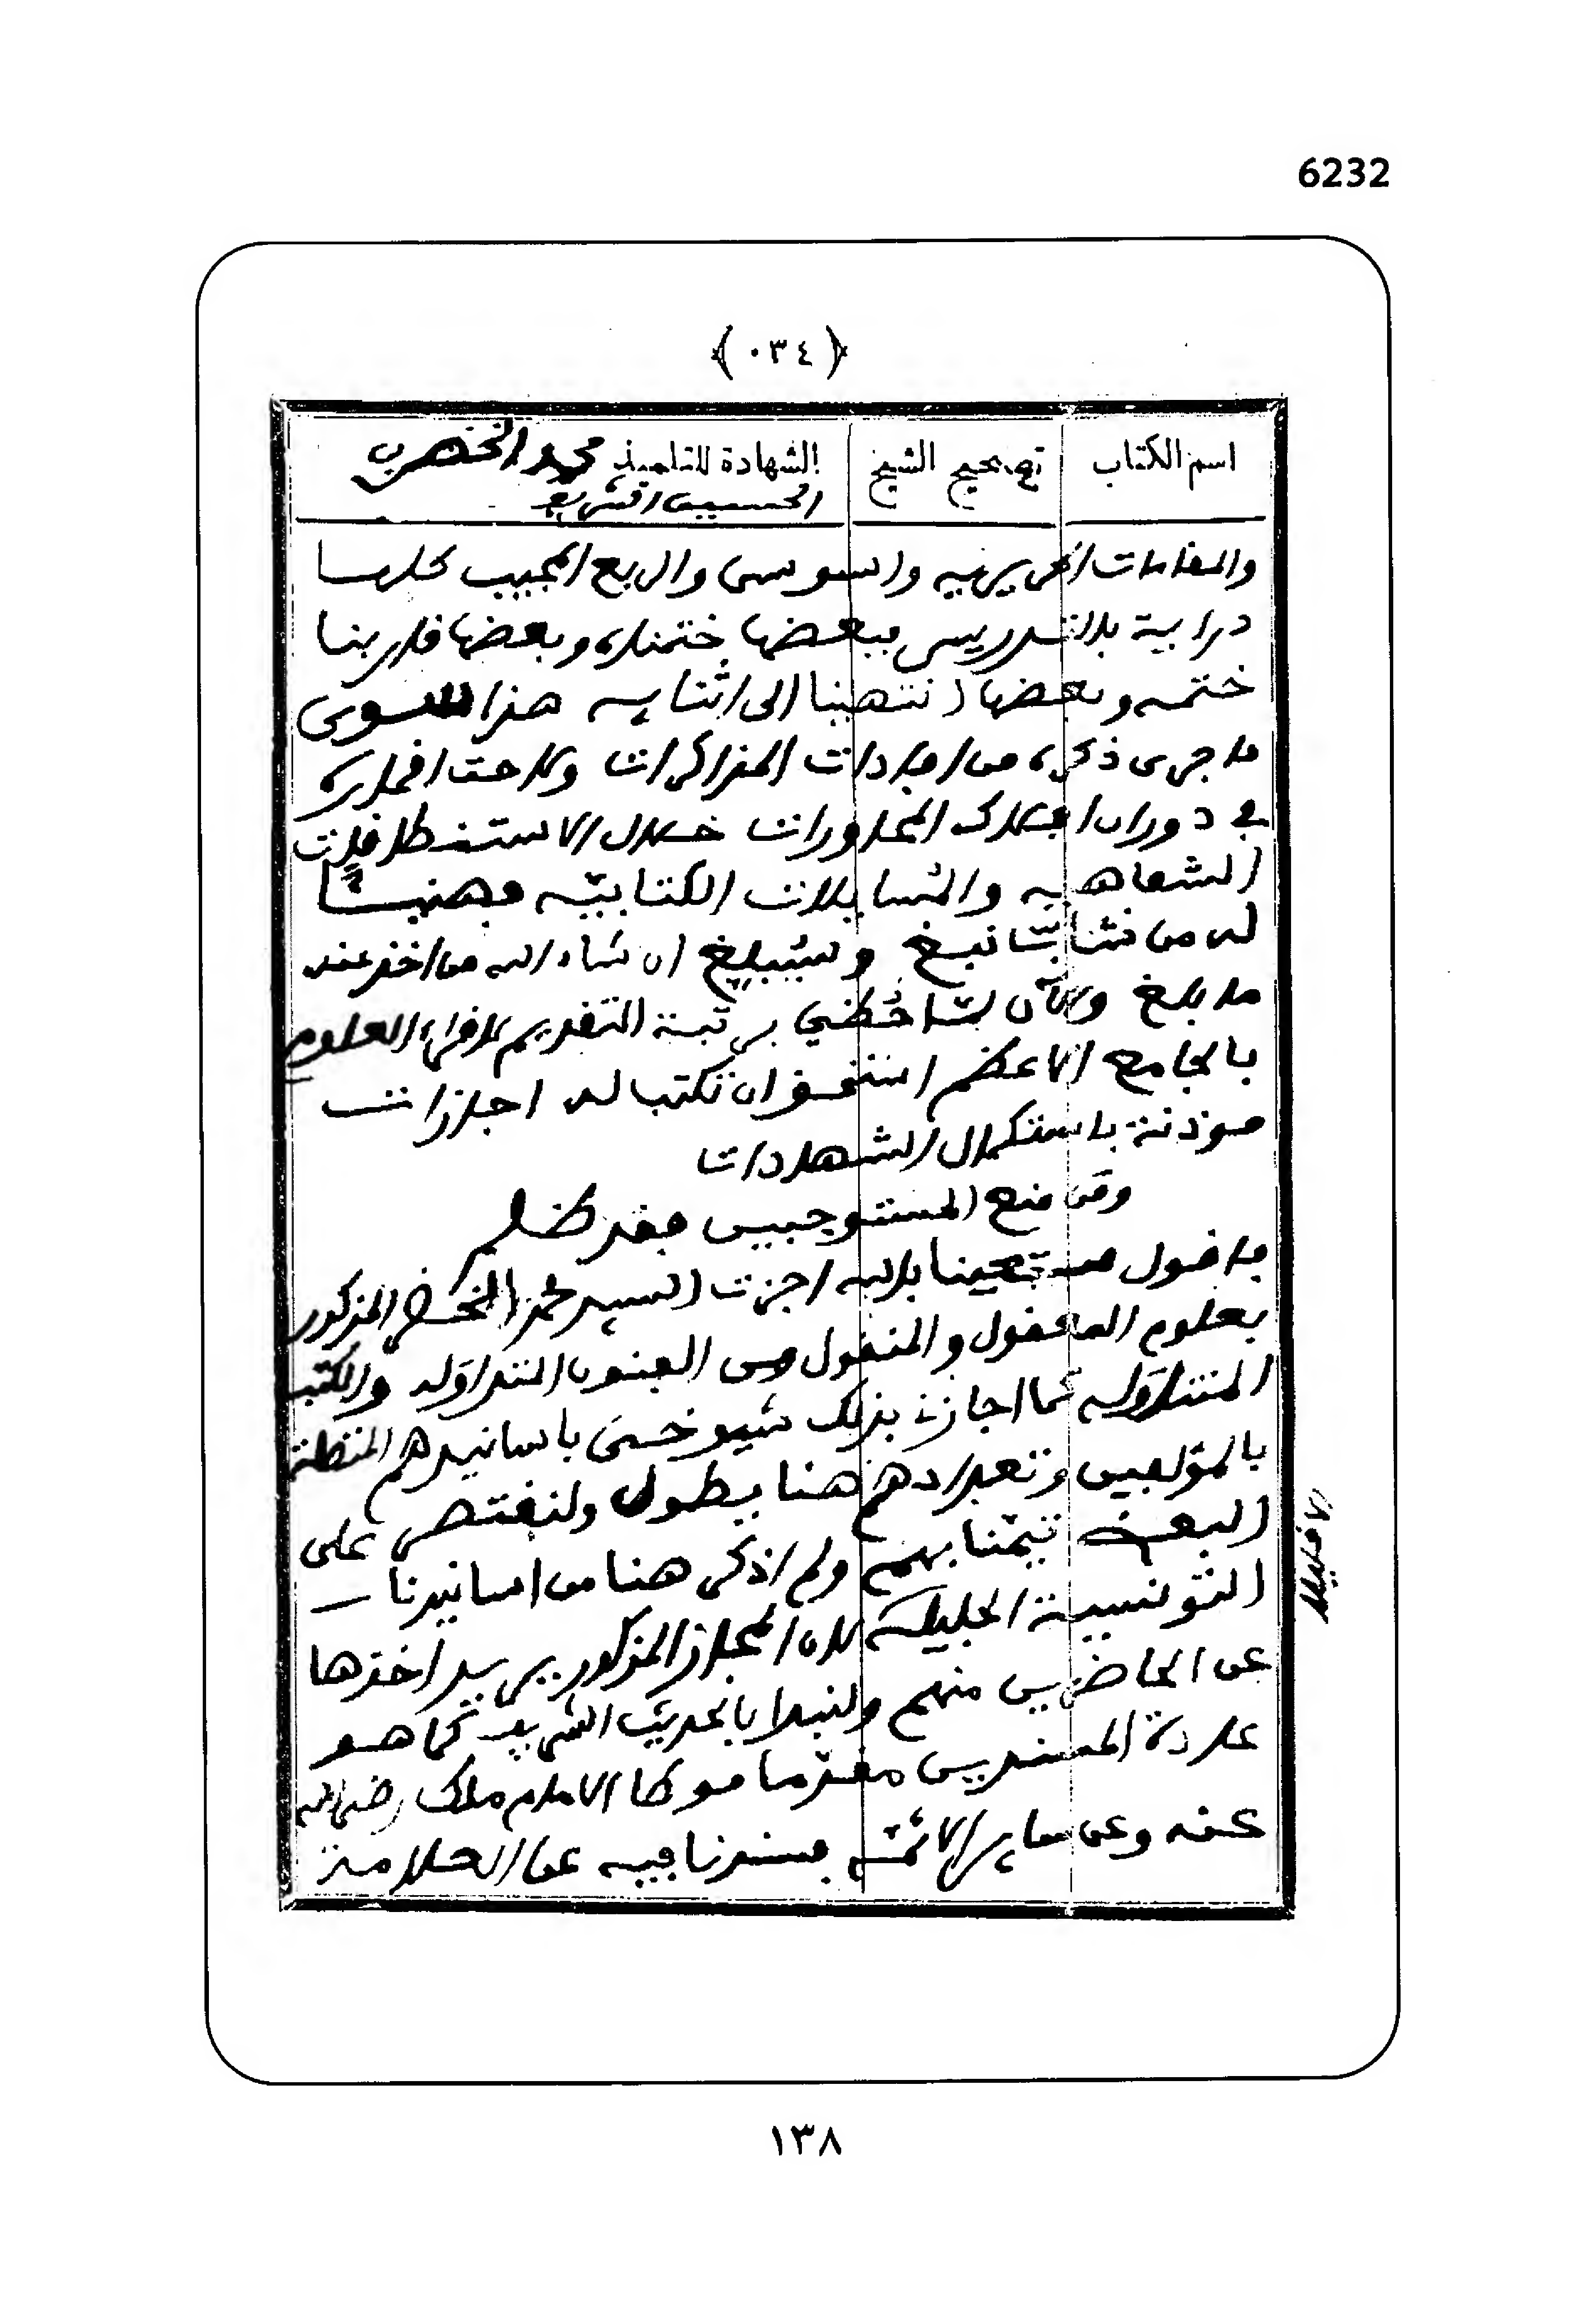 6232
﴿ ٠٣٤ ﴾
اسم الكتاب
تصحيح الشيخ
الشهادة للتلميذ محمد الخضر بن
الحسين الشريف
والمقامات الحريريه والسوسى والربع المجيب كلها
دراية بالتدريس فبعضها ختمناه وبعضها قاربنا
ختمه وبعضها انتهينا الى اثنايه هذا سوى
ما جرى ذكره من افادات المذاكرات ولاحت اقماره
في دوران افلاك المحاورات خلال الاستنطاقات
الشفاهيه والمسايلات الكتابيّه فهنيئًا
له من نشا نبغ وسيبلغ ان شاء الله من اخذ عنه
ما بلغ والآن لمّا حُظي برتبة التقديم لاقراء العلوم
بالجامع الاعظم استحق ان تكتب له اجازات
موذنة باستكمال الشهادات
ومن منح المستوجبين فقد ظلم
فاقول مستعينا بالله اجزت السيد محمد الخضر المذكور
بعلوم المعقول والمنقول وسى الفنون المتداوله والكتب
المتناوله كما اجازني بذلك شيوخى باسانيدهم المتصلة
بالمؤلفين وتعدادهم هنا يطول ولنقتصر على
البعض تيمّنا بهم ولم اذكر هنا من اسانيدنا
التونسية الجليلة لان المجاز المذكور بين يديه اخذها
الا قليلا
عن الحاضرين منهم ولنبدا بالحديث الشريف كما هو
عادة المسندين مقدّما موطا الامام مالك رضى الله
عنه وعن ساير الائمّه فسندنا فيه عن العلامة
١٣٨